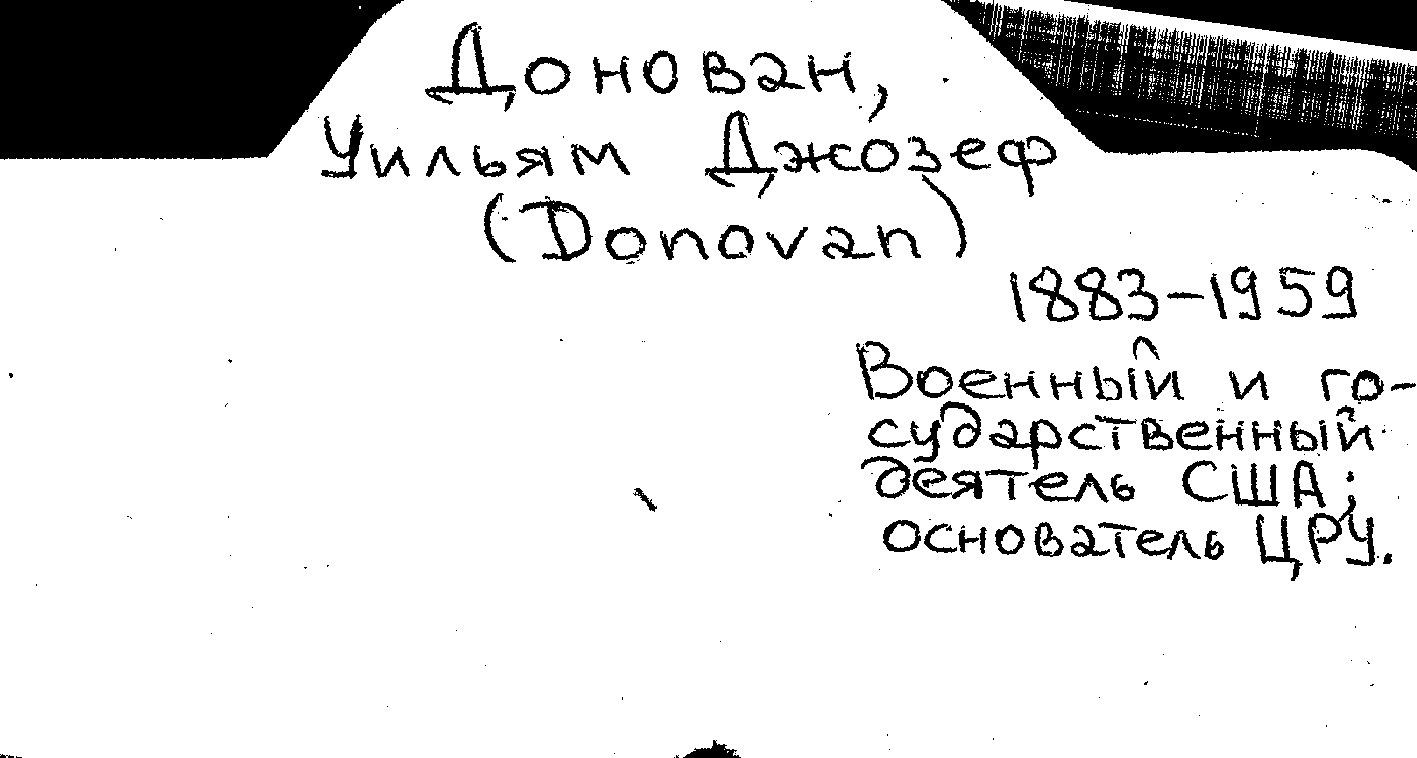 Донован,
Уильям Джозеф
(Donovan)
1883-1959
Военный и го-
сударственный
деятель США;
основатель ЦРУ.